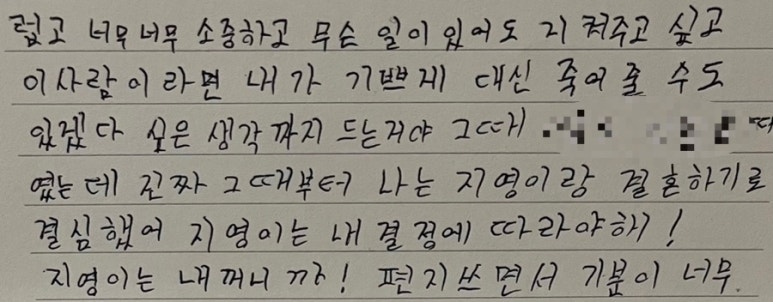 럽고 너무너무 소중하고 무슨 일이 있어도 지켜주고 싶고
이사람이라면 내가 기쁘게 대신 죽어줄 수도
있겠다 싶은 생각까지 드는거야 그때
였는데 진짜 그때부터 나는 지영이랑 결혼하기로
결심했어 지영이는 내 결정에 따라야해!
지영이는 내꺼니까! 편지쓰면서 기분이 너무